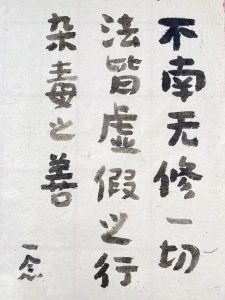 不南无修一切
法皆虚假之行
杂毒之善
一念